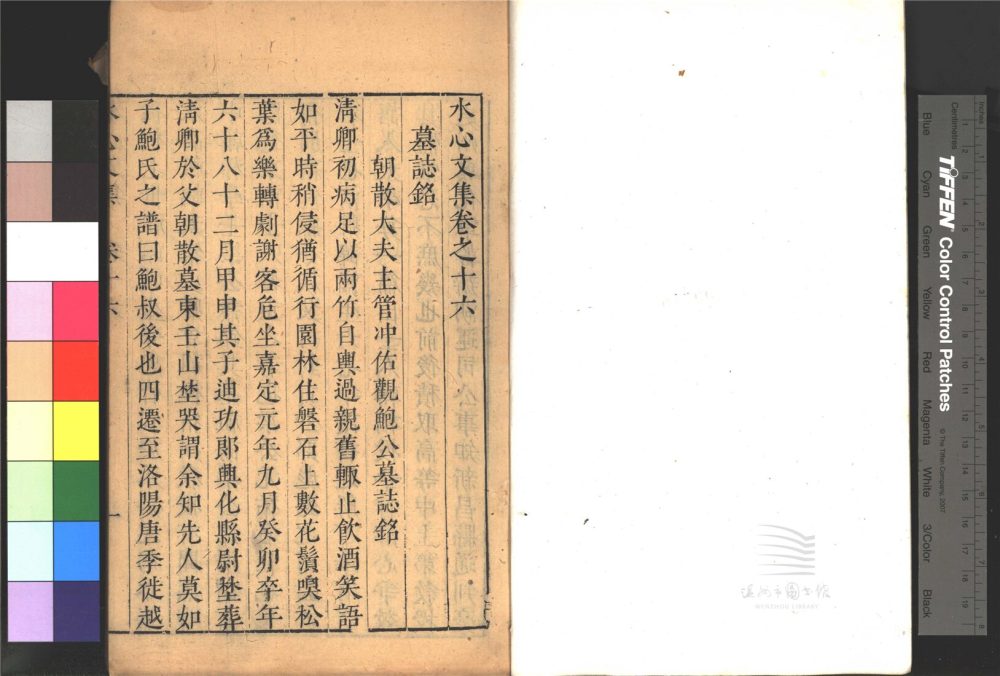 水心文集卷之十六
墓誌銘
朝散大夫主管冲佑觀鮑公墓誌銘
淸卿初病足以兩竹自輿過親舊輙止飮酒笑語
如平時稍侵猶循行園林住磐石上數花鬚嗅松
葉爲樂轉劇謝客危坐嘉定元年九月癸卯卒年
六十八十二月甲申其子迪功郞興化縣尉埜葬
淸卿於父朝散墓東壬山埜哭謂余知先人莫如
子鮑氏之譜曰鮑叔後也四遷至洛陽唐季徙越
水心文集 卷十六 一
溫州市圖書館
WENZHOU LIBRARY
Inches
Centimetres
TIFFEN Color Control Patches
© The Tiffen Company, 2007
Blue
Cyan
Green
Yellow
Red
Magenta
White
3/Color
Black